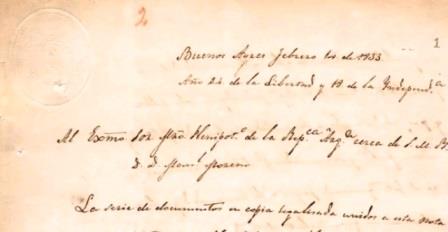 2
1
Buenos Ayres febrero 14 de 1833
Año 24 de la Libertad y 18 de la Independ.ª
Al Exmo Sor Mño Plenipot.º de la Rep.ca Arg.ª cerca de S. M. B.
D. D. Man.l Moreno
La serie de documentos en copia legalisada unidos a esta nota